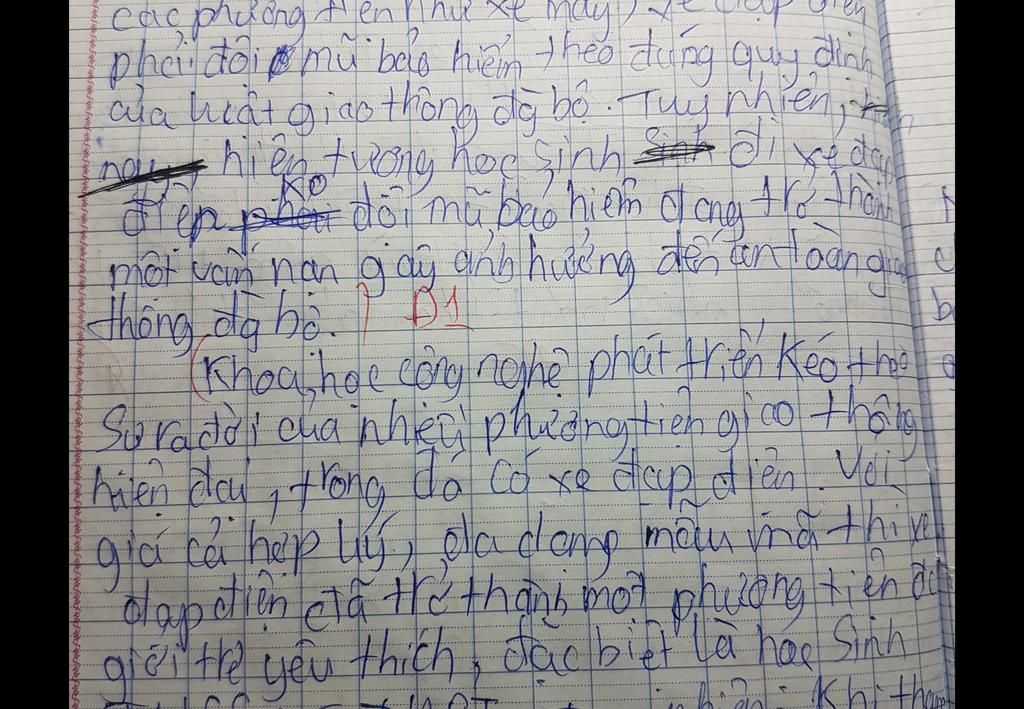 các phương tiện như xe máy, xe đạp điện
phải đội mũ bảo hiểm theo đúng quy định
của luật giao thông đg bộ. Tuy nhiên,
hiện tượng học sinh đi xe đạp
điện ko đội mũ bảo hiểm đang trở thành
một vấn nạn gây ảnh hưởng đến an toàn giao
thông đg bộ. D1
Khoa học công nghệ phát triển kéo theo
Sự ra đời của nhiều phương tiện giao thông
hiện đại, trong đó có xe đạp điện. Với
giá cả hợp lý, đa dạng mẫu mã thì xe
đạp điện đã trở thành một phương tiện đc
giới trẻ yêu thích, đặc biệt là học sinh
Khi tham